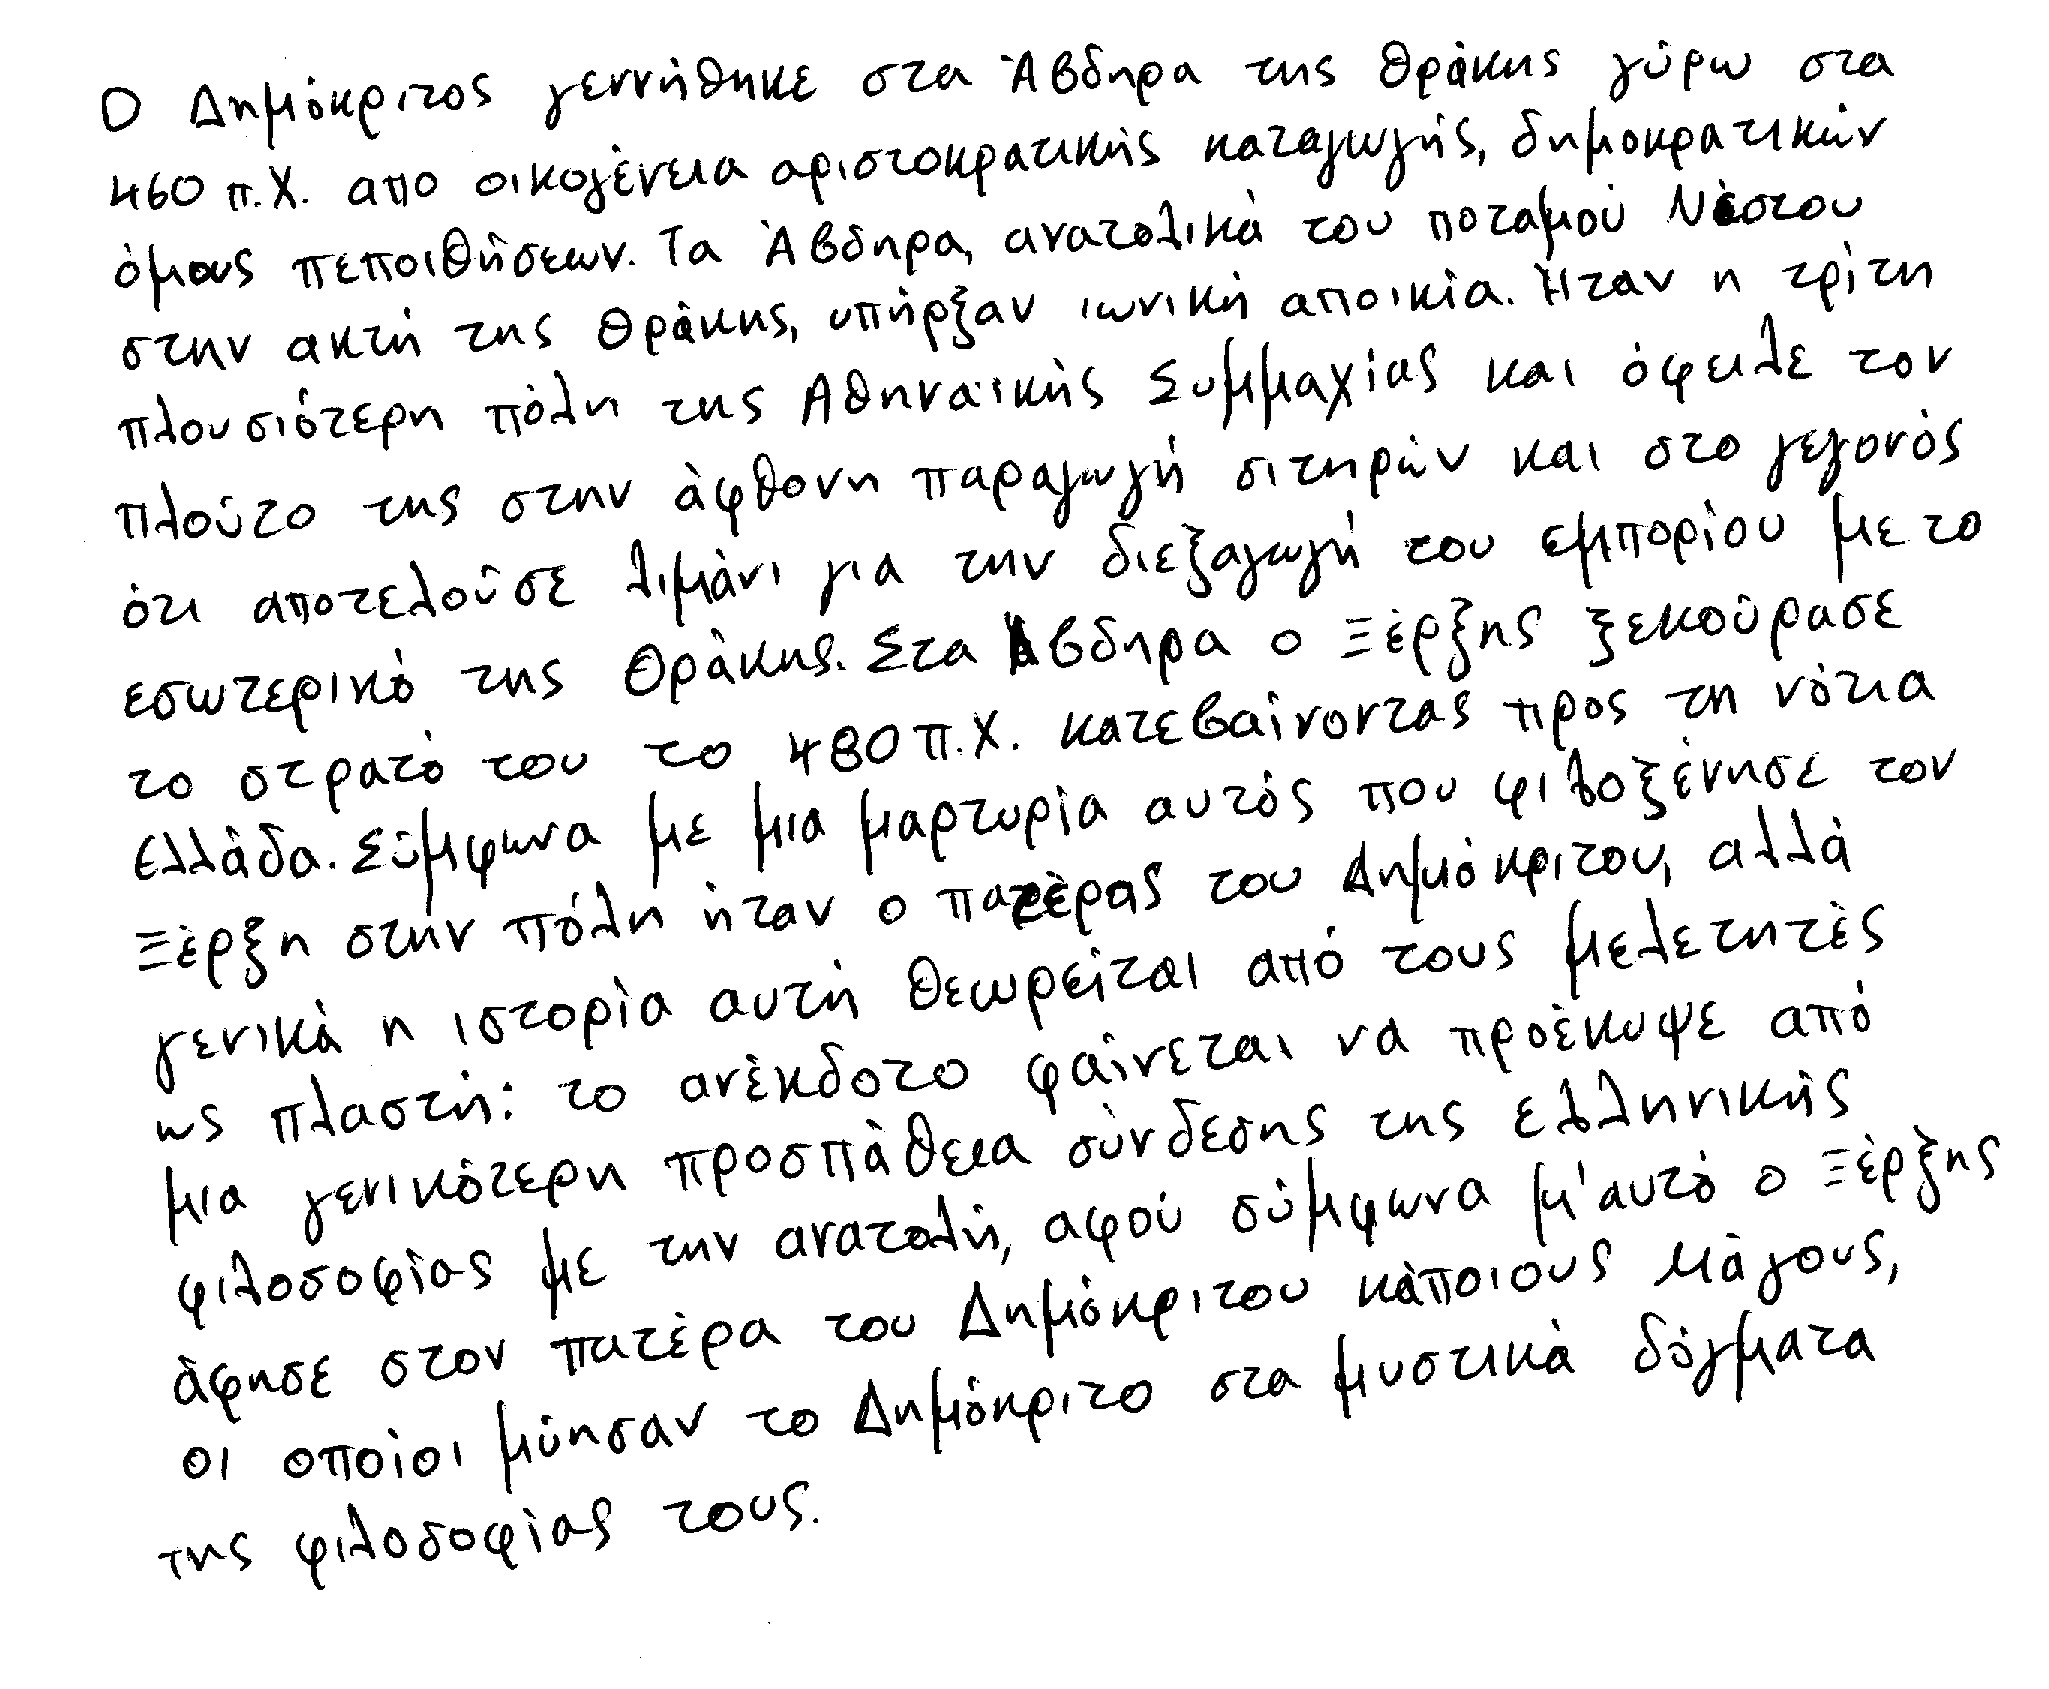 Ο Δημόκριτος γεννήθηκε στα Άβδηρα της Θράκης γύρω στα
460 π.Χ. απο οικογένεια αριστοκρατικής καταγωγής, δημοκρατικών
όμως πεποιθήσεων. Τα Άβδηρα, ανατολικά του ποταμού Νέστου
στην ακτή της Θράκης, υπήρξαν ιωνική αποικία. Ήταν η τρίτη
πλουσιότερη πόλη της Αθηναϊκής Συμμαχίας και όφειλε τον
πλούτο της στην άφθονη παραγωγή σιτηρών και στο γεγονός
ότι αποτελούσε λιμάνι για την διεξαγωγή του εμπορίου με το
εσωτερικό της Θράκης. Στα Άβδηρα ο Ξέρξης ξεκούρασε
το στρατό του το 480 π.Χ. κατεβαίνοντας προς τη νότια
Ελλάδα. Σύμφωνα με μια μαρτυρία αυτός που φιλοξένησε τον
Ξέρξη στην πόλη ήταν ο πατέρας του Δημόκριτου, αλλά
γενικά η ιστορία αυτή θεωρείται από τους μελετητές
ως πλαστή: το ανέκδοτο φαίνεται να προέκυψε από
μια γενικότερη προσπάθεια σύνδεσης της ελληνικής
φιλοσοφίας με την ανατολή, αφού σύμφωνα μ'αυτό ο Ξέρξης
άφησε στον πατέρα του Δημόκριτου κάποιους Μάγους,
οι οποίοι μύησαν το Δημόκριτο στα μυστικά δόγματα
της φιλοσοφίας τους.